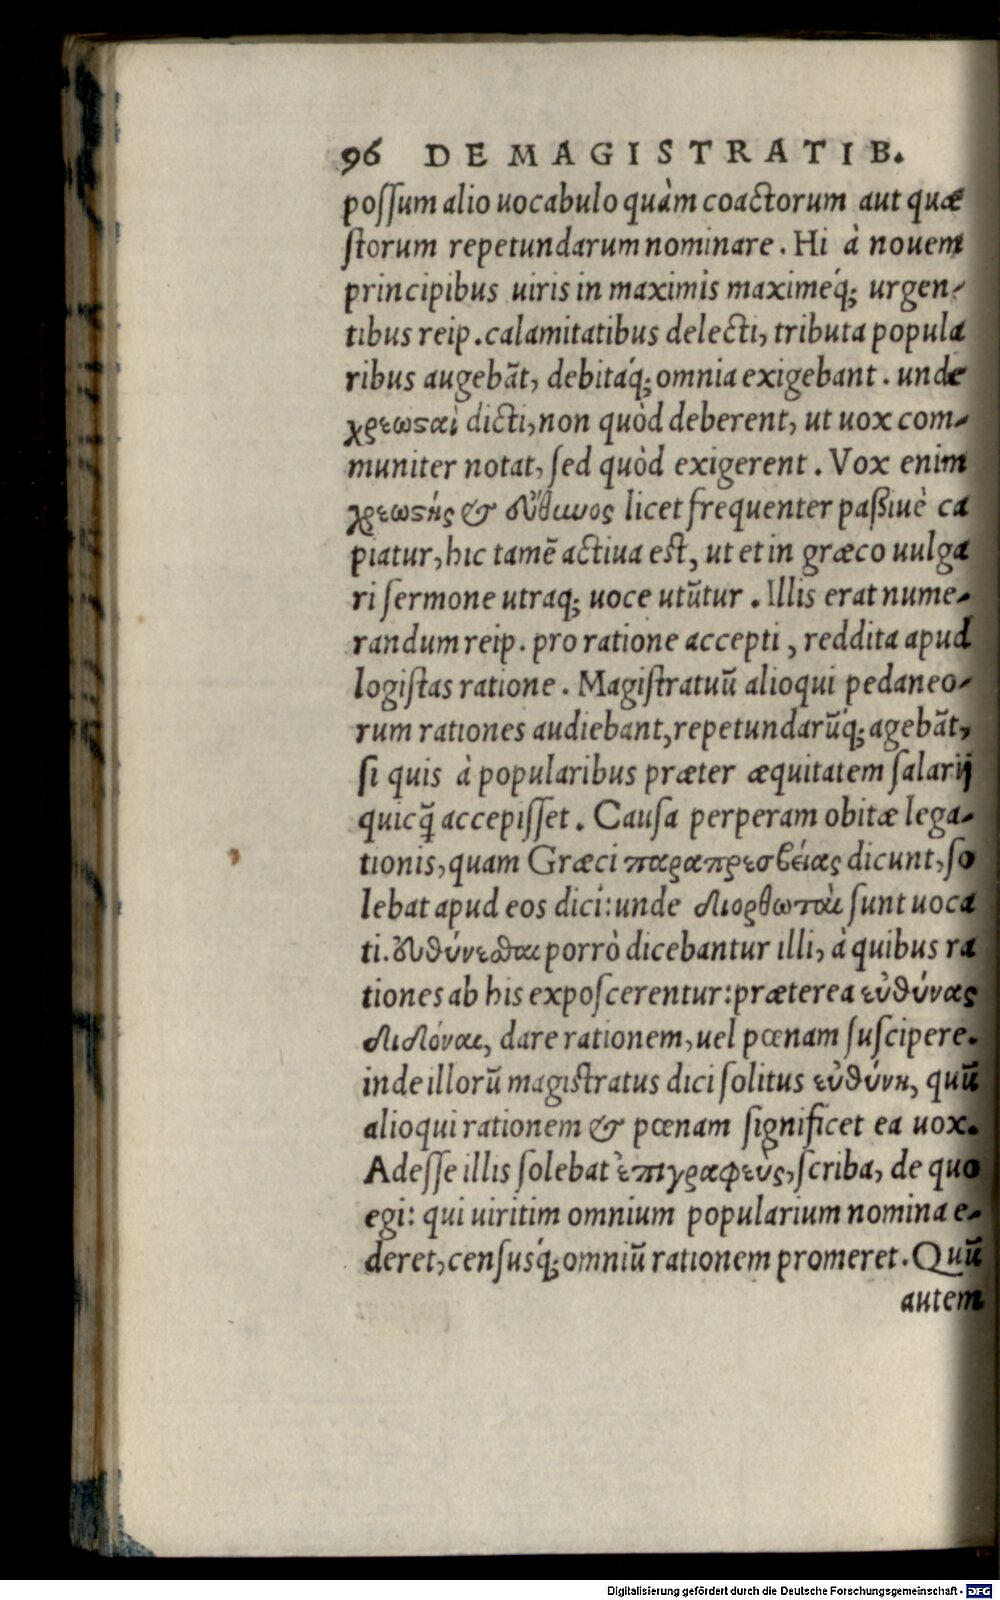 96 DE MAGISTRATIB.
possum alio uocabulo quàm coactorum aut quæ
storum repetundarum nominare. Hi à nouem
principibus uiris in maximis maximéq́; urgen-
tibus reip. calamitatibus delecti, tributa popula
ribus augebāt, debitáq́; omnia exigebant. unde
χρεωϛαὶ dicti, non quòd deberent, ut uox com-
muniter notat, sed quòd exigerent. Vox enim
χρεωϛής & εὔθυνος licet frequenter passiuè ca
piatur, hic tamē actiua est, ut et in græco uulga
ri sermone utraq; uoce utūtur. Illis erat nume-
randum reip. pro ratione accepti, reddita apud
logistas ratione. Magistratuū alioqui pedaneo-
rum rationes audiebant, repetundarūq́; agebāt,
si quis à popularibus præter æquitatem salarij
quicq̃ accepisset. Causa perperam obitæ lega-
tionis, quam Græci παραπρεσβείας dicunt, so
lebat apud eos dici: unde διορθωταὶ sunt uoca
ti. Εὐθύνεσθαι porrò dicebantur illi, à quibus ra
tiones ab his exposcerentur: præterea εὐθύνας
διδόναι, dare rationem, uel pœnam suscipere.
inde illorū magistratus dici solitus εὐθύνη, quū
alioqui rationem & pœnam significet ea uox.
Adesse illis solebat ἐπιγραφεὺς, scriba, de quo
egi: qui uiritim omnium popularium nomina e-
deret, censusq́; omniū rationem promeret. Quū
autem
Digitalisierung gefördert durch die Deutsche Forschungsgemeinschaft - DFG